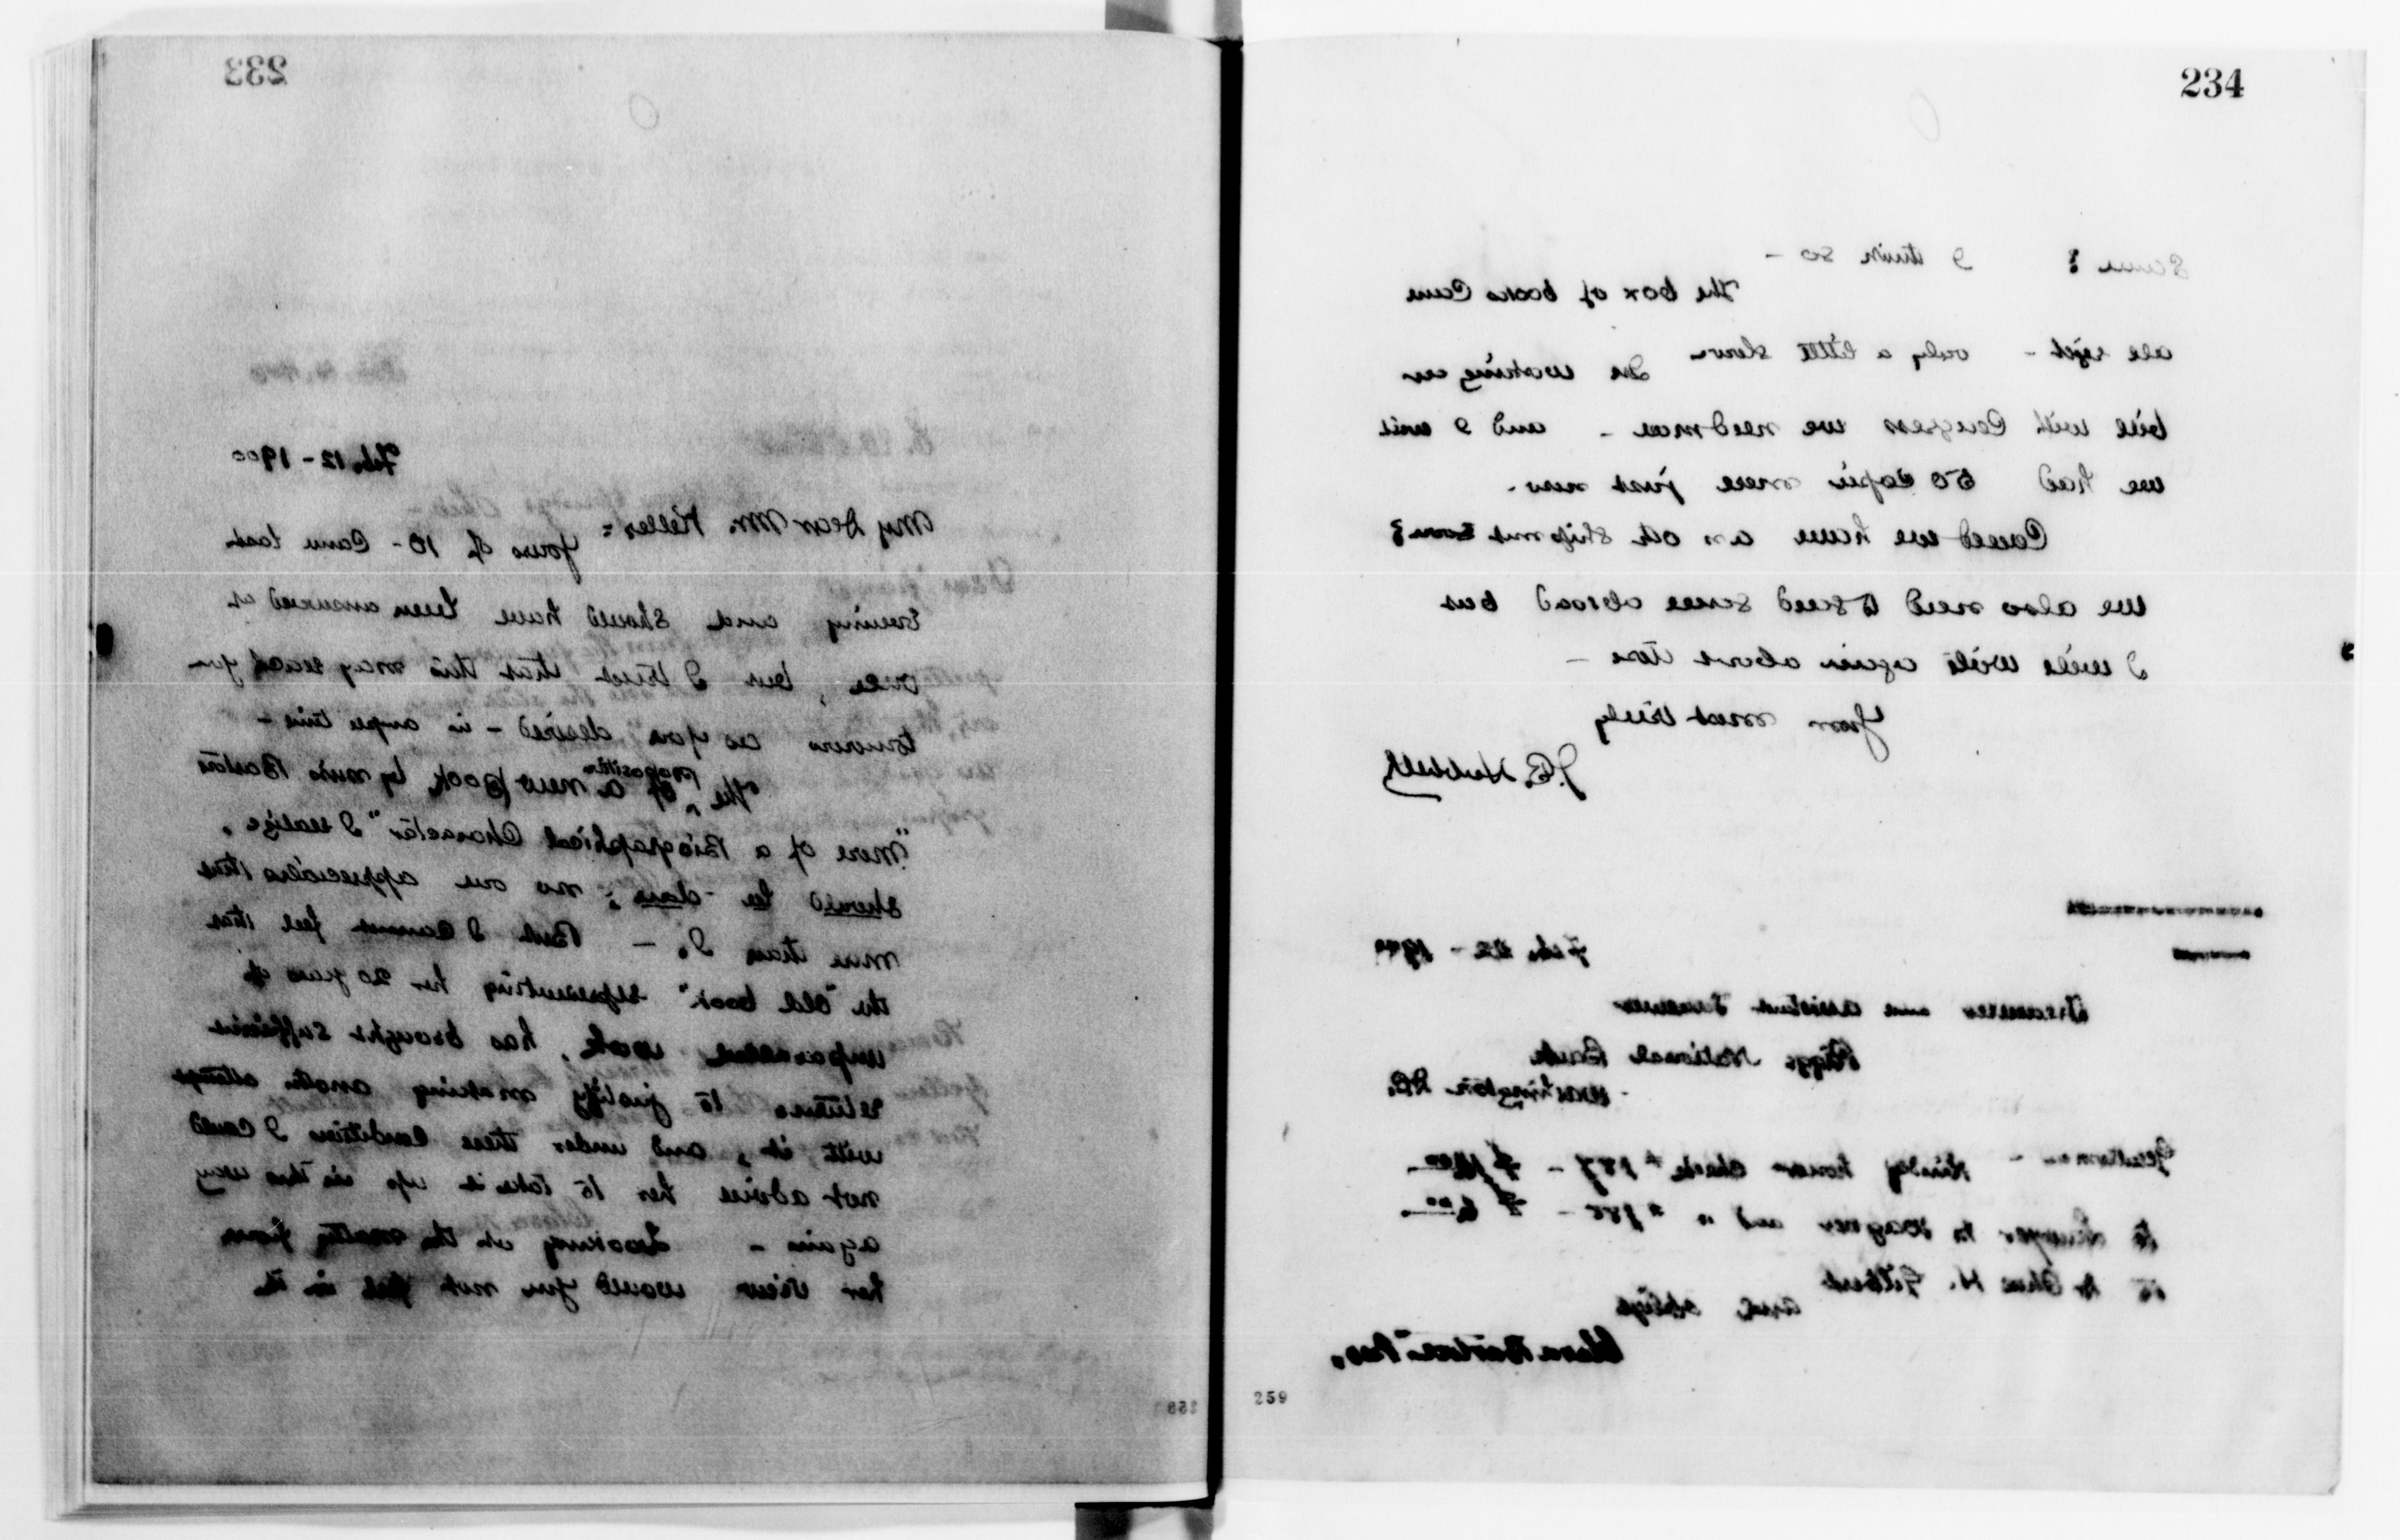 233
Feb. 12 - 1900
My Dear Mr. Keller:
Yours of 10 - Came last
Evening and should have been answered at
once, but I trust that this may reach you
tomorrow as you desired - in ample time -
The proposition of a new Book by Miss Barton
"More of a Biographical Character" I realize,
should be done; no one appreciates this
more than I. - But I cannot feel that
the "old book" representing her 20 years of
unparalleled work, has brought sufficient
returns to justify making another attempt
with it, and under these conditions I could
not advise her to take it up in this way
again - Looking at the matter from
her view would you not feel in the
258
234
Same? I think so -
The box of books Came
all right - only a little slow - In working our
bill with Congress we need more - and I wish
we had 50 Copies more just now.
Could we have an other shipment soon?
We also need to send some abroad but
I will write again about them -
Your most truly
J. B. Hubbell
Feb. 22 - 1900
Treasurer and Assistant Treasurer
Riggs National Bank
Washington D.C.
Gentlemen - Kindly honor check # 187 -
to Lawyer Wagner and " # 188 - $ 6.00
to Dr Chas. H. Gilbert
and oblige
Clara Barton Pres.
259